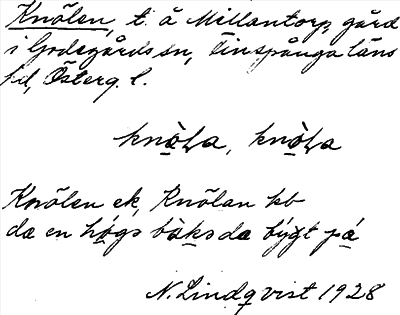 Knölen, t. å Mellantorp, gård
i Godegårds sn, Finspånga läns
hd, Österg. l.
knò̱ḷa, knò̱ḷa
Knölen ek, Knölan kb
da en hó̱gs bàksda býgt på
N. Lindqvist 1928